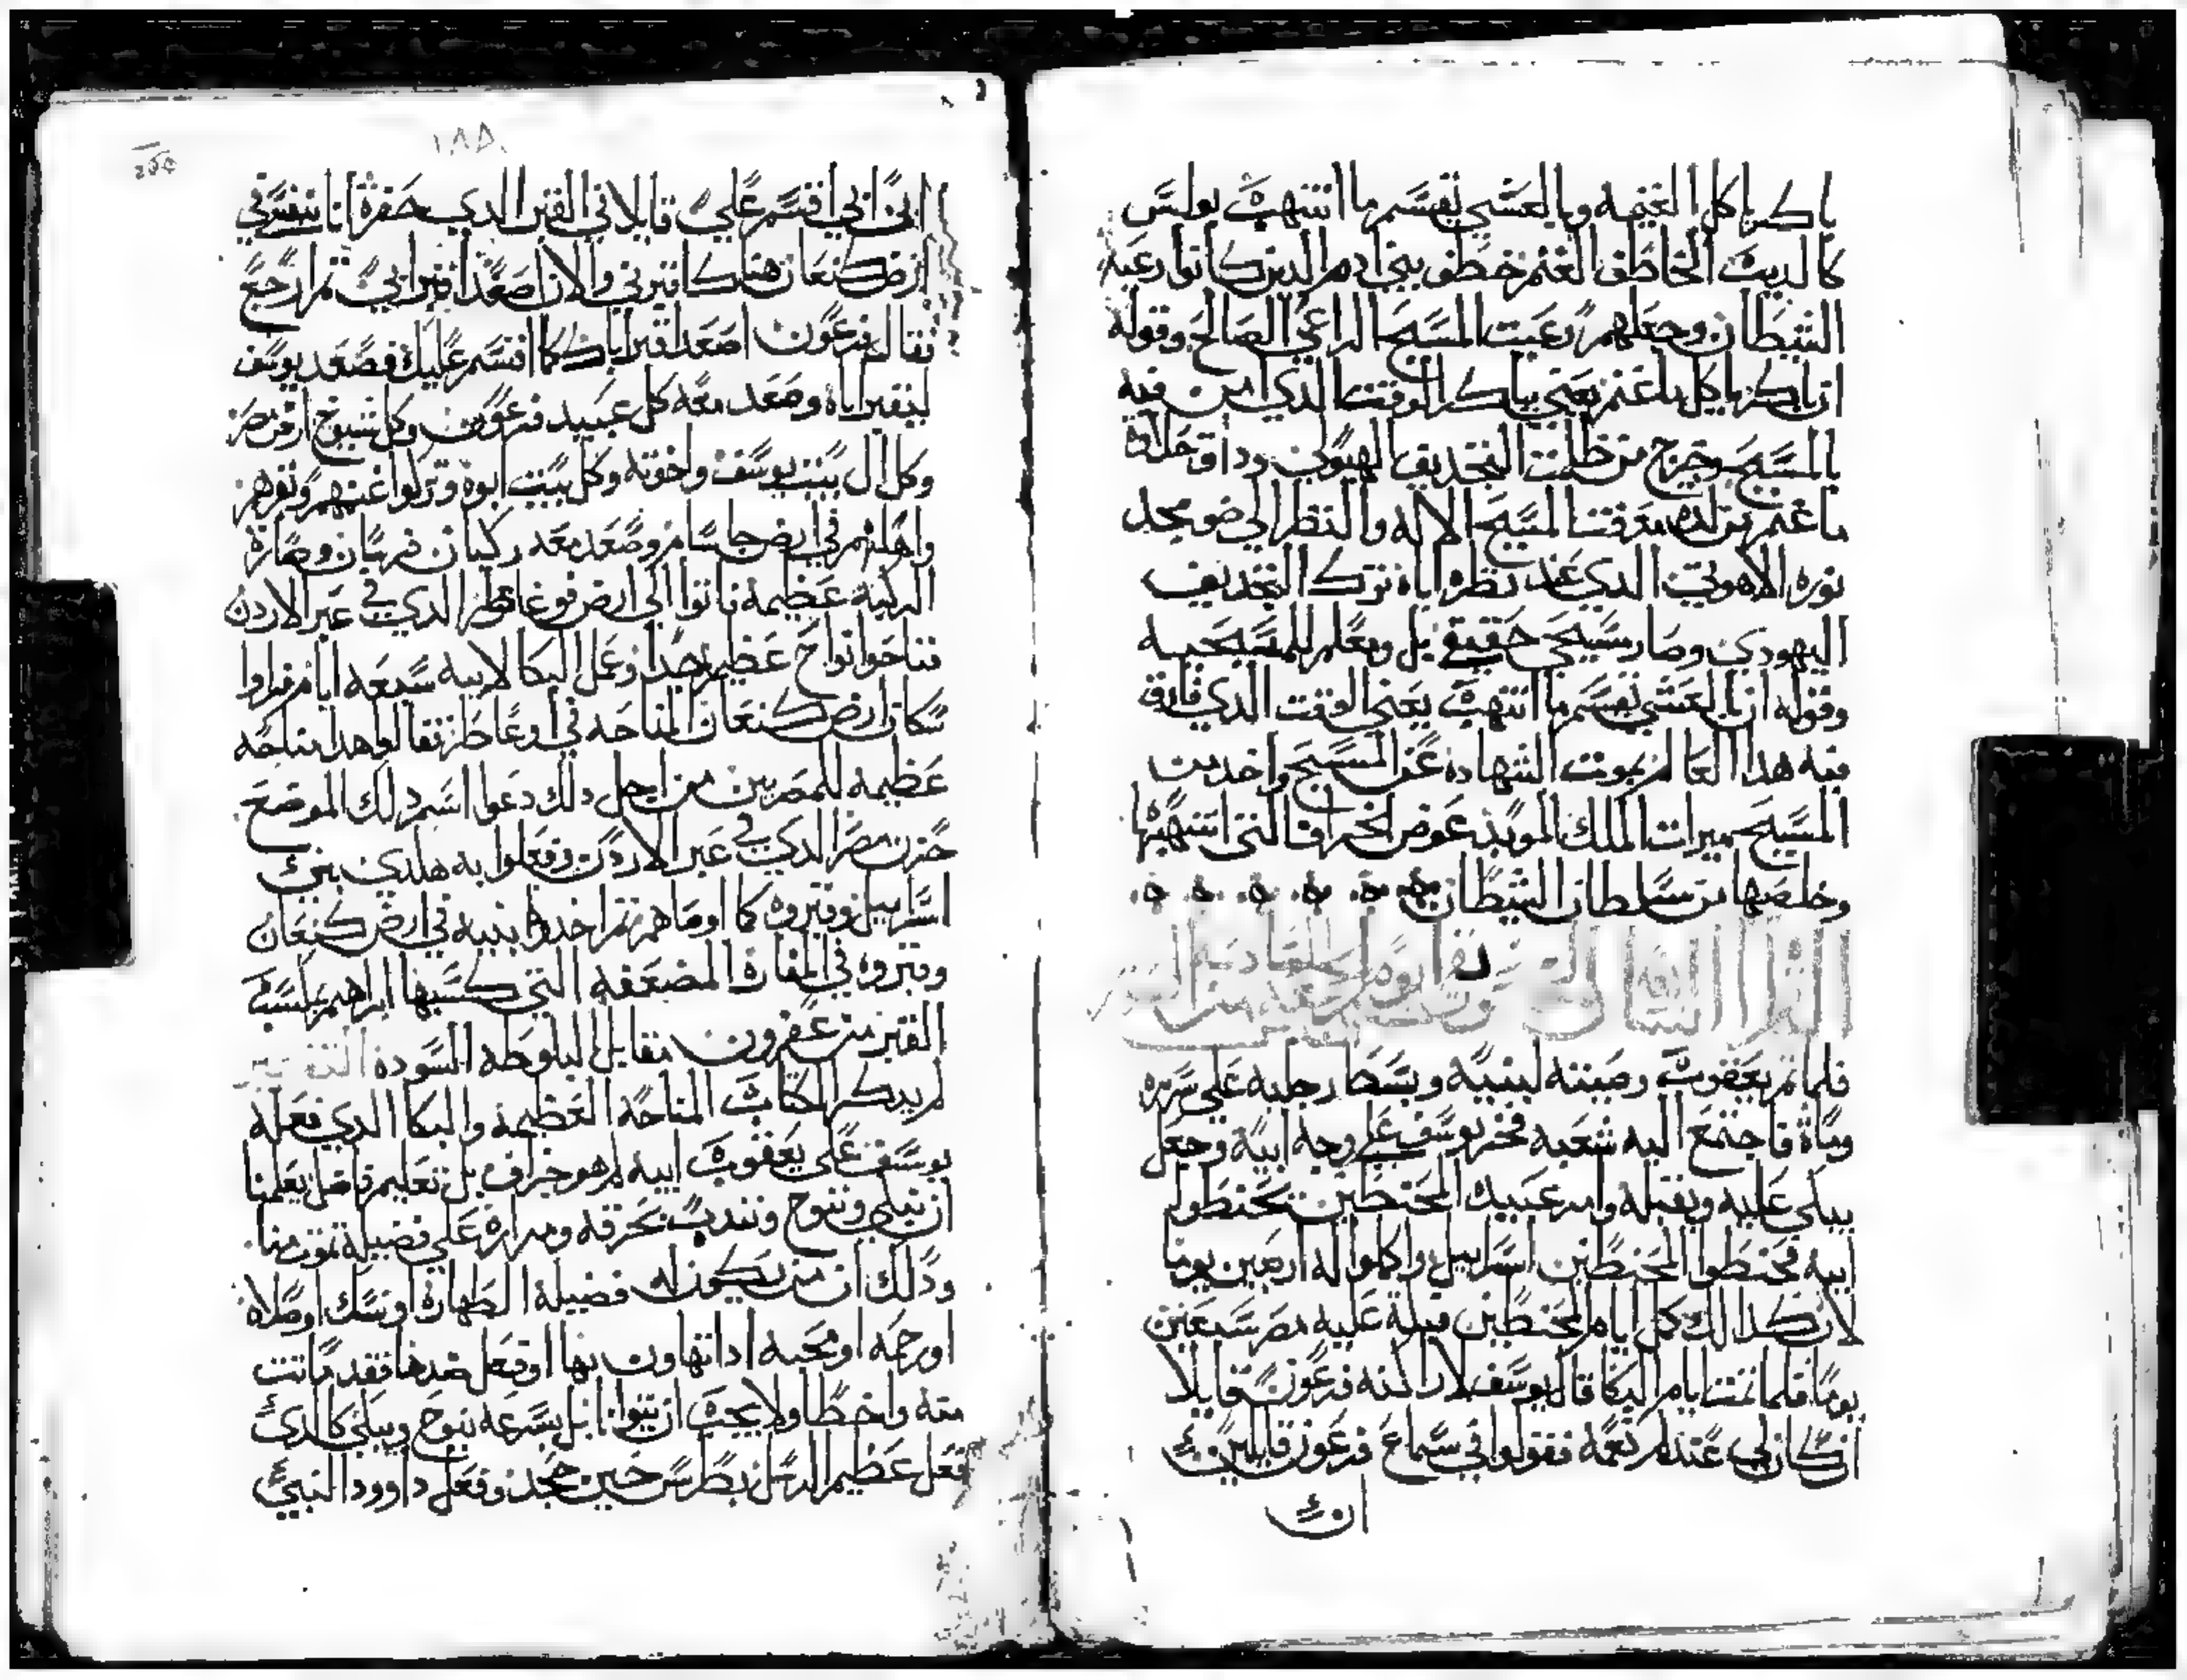 باكر ياكل الغنيمه وبالعشي يقسم ما انتهب بولس
كالديب الخاطف الغنم خطف بني ادم الدين كانوا رعية
الشيطان وجعلهم رعيت المسيح الراعي الصالح وقوله
ان باكر ياكل ما غنم يعني بباكر الوقت الدي امن فيه
بالمسيح وخرج من ظلمت التجديف الهيولي وداق حلاوة
ما غنم من لده معرفت المسيح الاله والنظر الي ضو مجد
نوره الاهوتي الدي عند نظره اياه ترك التجديف
اليهودي وصار مسيحي حقيقي بل ومعلم للمسيحيه
وقوله ان بالعشي يقسم ما انتهب يعني الوقت الدي فارق
فيه هدا العالم بموت الشهاده عن المسيح واخد من
المسيح ميرات الملك الموبد عوض الخراف التي انتهبها
وخلصها من سلطان الشيطان
فلما تم يعقوب وصيته لبنيه وبسط رجليه علي سريره
وماة فاجتمع اليه شعبه فخر يوسف علي وجه ابيه وجعل
يبكي عليه ويقبله وامر عبيده المحنطين تحنطوا
ابيه فحنطوا المحنطين اسراييل واكملوا له اربعين يوما
لان كدالك كل ايام المحنطين مبلة عليه مصر سبعين
يوما فلما تمت ايام البكا قال يوسف لاراكنه فرعون قايلا
ان كان لي عندكم نعمه فقولوا في سماع فرعون قايلين
ان
١٨٥
ان ابي اقسم علي قايلا في القبر الدي حفرة انا لنفسي في
ارض كنعان هناك اقبرني والان صعدا اقبر ابي تم ارجع
فقال فرعون اصعد اقبر اباك كما اقسم عليك فصعد يوسف
ليقبر اباه وصعد معه كل عبيد فرعون وكل شيوخ ارض مصر
وكل ال بيت يوسف واخوته وكل بيت ابوه وتركوا غنمهم وبقرهم
واهلهم في ارض جاسام وصعد معه ركبان فرسان وصارة
الركبه عظيمه فاتوا الي ارض غاطز الدي في عبر الاردن
فناحوا نواح عظيم جدا وعمل البكا لابيه سبعه ايام فراوا
سكان ارض كنعان المناحه في اوعاطز فقالوا هدا مناحه
عظيمه للمصريين من اجل دلك دعوا اسم دلك الموضع
حزن مصر الدي في عبر الاردن وفعلوا به هلدي بني
اسراييل وقبروه كما اوصاهم تم اخدوا بنيه في ارض كنعان
وقبروه في المغارة المضعفه التي كسبها ابراهيم بكسب
القبر من عفرون مقابل البلوطه السوده التفسير
لم يدكر الكتاب المناحه العظيمه والبكا الدي فعله
يوسف علي يعقوب ابيه لم هو جزاف بل تعليم فاضل يعلمنا
ان نبكي وننوح ونندب بحرقه ومرارة علي فضيله تموت منا
ودالك ان من تكون له فضيلة الطهارة او نسك او صلاه
او رحمه او محبه ادا تهاون بها او فعل ضدها فقد ماتت
منه واخطا ولا يجب ان يتوانا بل بسرعه ينوح ويبكي كالدي
فعل عظيم الرسل بطرس حين جحد وفعل داوود النبي